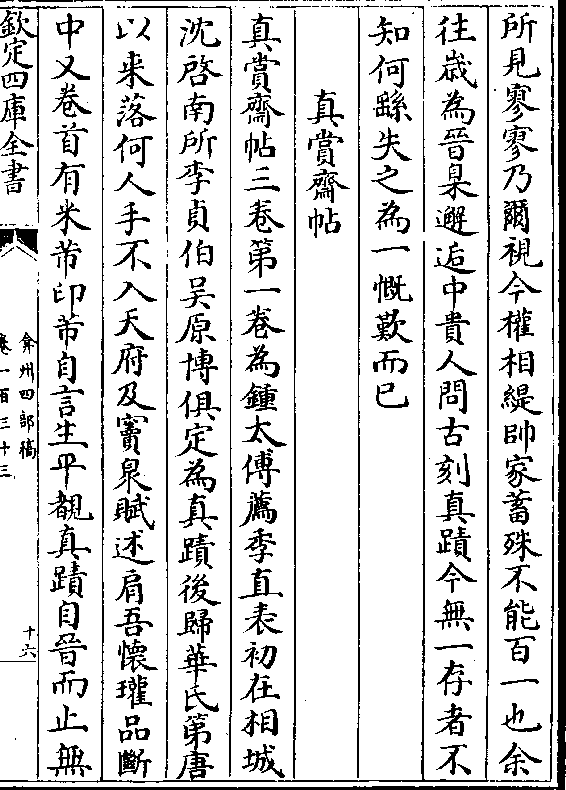 所見寥寥乃爾視今權相緹帥家蓄殊不能百一也余
往歳為晉臬邂逅中貴人問古刻真蹟今無一存者不
知何繇失之為一慨歎而已
真賞齋帖
真賞齋帖三卷第一卷為鍾太傅薦季直表初在相城
沈啓南所李貞伯吴原博俱定為真蹟後歸華氏第唐
以来落何人手不入天府及竇泉賦述肩吾懷瓘品斷
中又卷首有米芾印芾自言生平覩真蹟自晉而止無
欽定四庫全書
弇州四部稿
卷一百三十三
十六